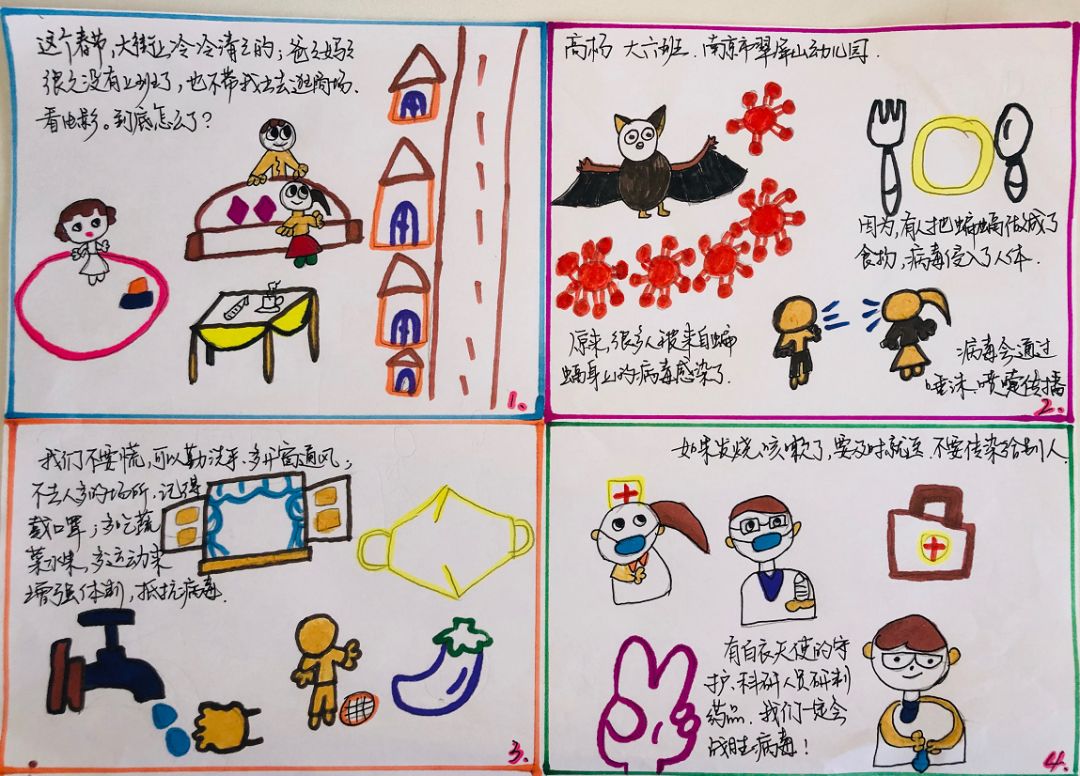 这个春节，大街上冷冷清清的，爸爸妈妈
很久没有上班了，也不带我出去逛商场、
看电影。到底怎么了？
1.
高杨 大六班. 南京市翠屏山幼儿园.
因为，有人把蝙蝠做成了
食物，病毒侵入了人体.
原来，很多人被来自蝙
蝠身上的病毒感染了.
病毒会通过
唾沫、喷嚏传播
2.
我们不要慌，可以勤洗手、多开窗通风；
不去人多的场所、记得
戴口罩；多吃蔬
菜水果，多运动来
增强体制，抵抗病毒.
3.
如果发烧、咳嗽了，要及时就医、不要传染给别人.
有白衣天使的守
护、科研人员研制
药品，我们一定会
战胜病毒！
4.